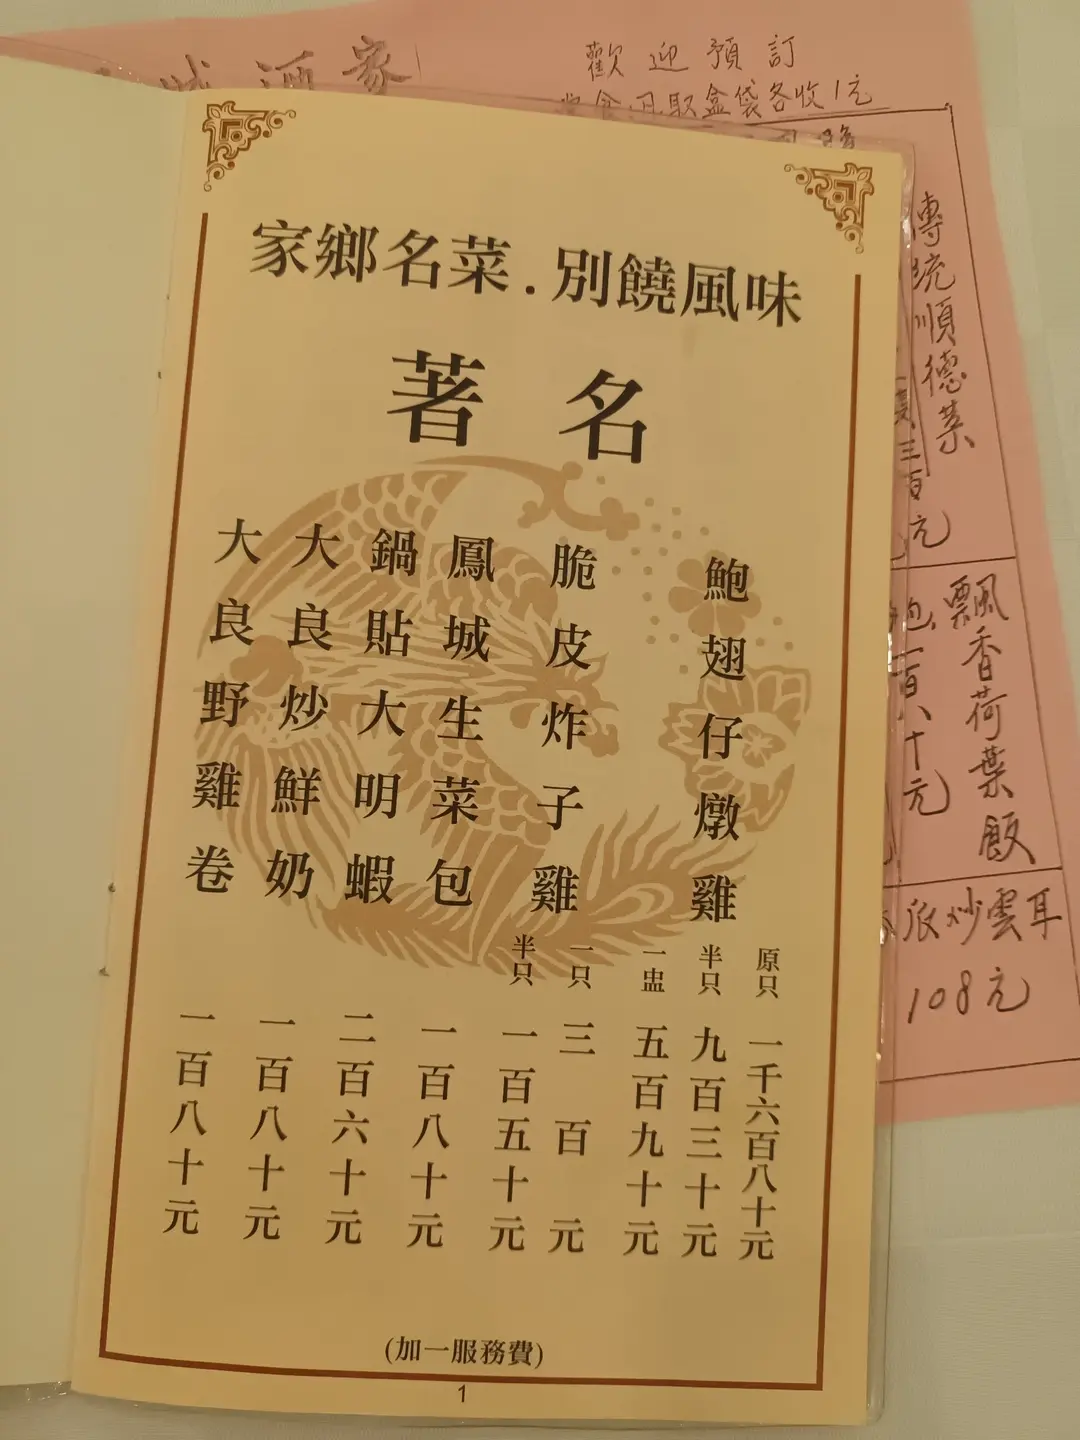 酒家
歡迎預訂
外取盒袋各收1元
家鄉名菜.別饒風味
著名
鮑翅仔燉雞
原只 一千六百八十元
半只 九百三十元
一盅 五百九十元
脆皮炸子雞
一只 三百元
半只 一百五十元
鳳城生菜包
一百八十元
鍋貼大明蝦
二百六十元
大良炒鮮奶
一百八十元
大良野雞卷
一百八十元
(加一服務費)
1
傳統順德菜
三百
元
飄香荷葉飯
一百八十元
炒雲耳
108元